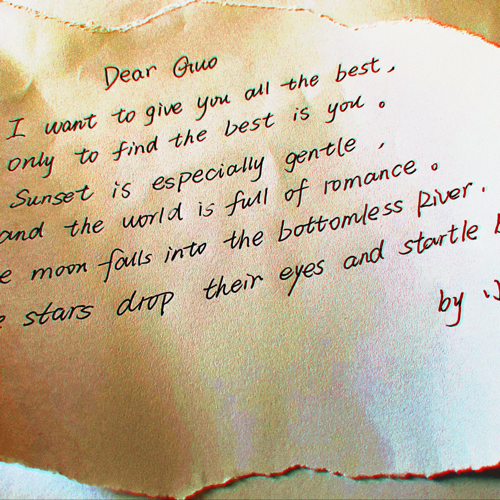 Dear Guo
I want to give you all the best,
only to find the best is you。
Sunset is especially gentle,
and the world is full of romance。
moon falls into the bottomless River.
stars drop their eyes and startle
by